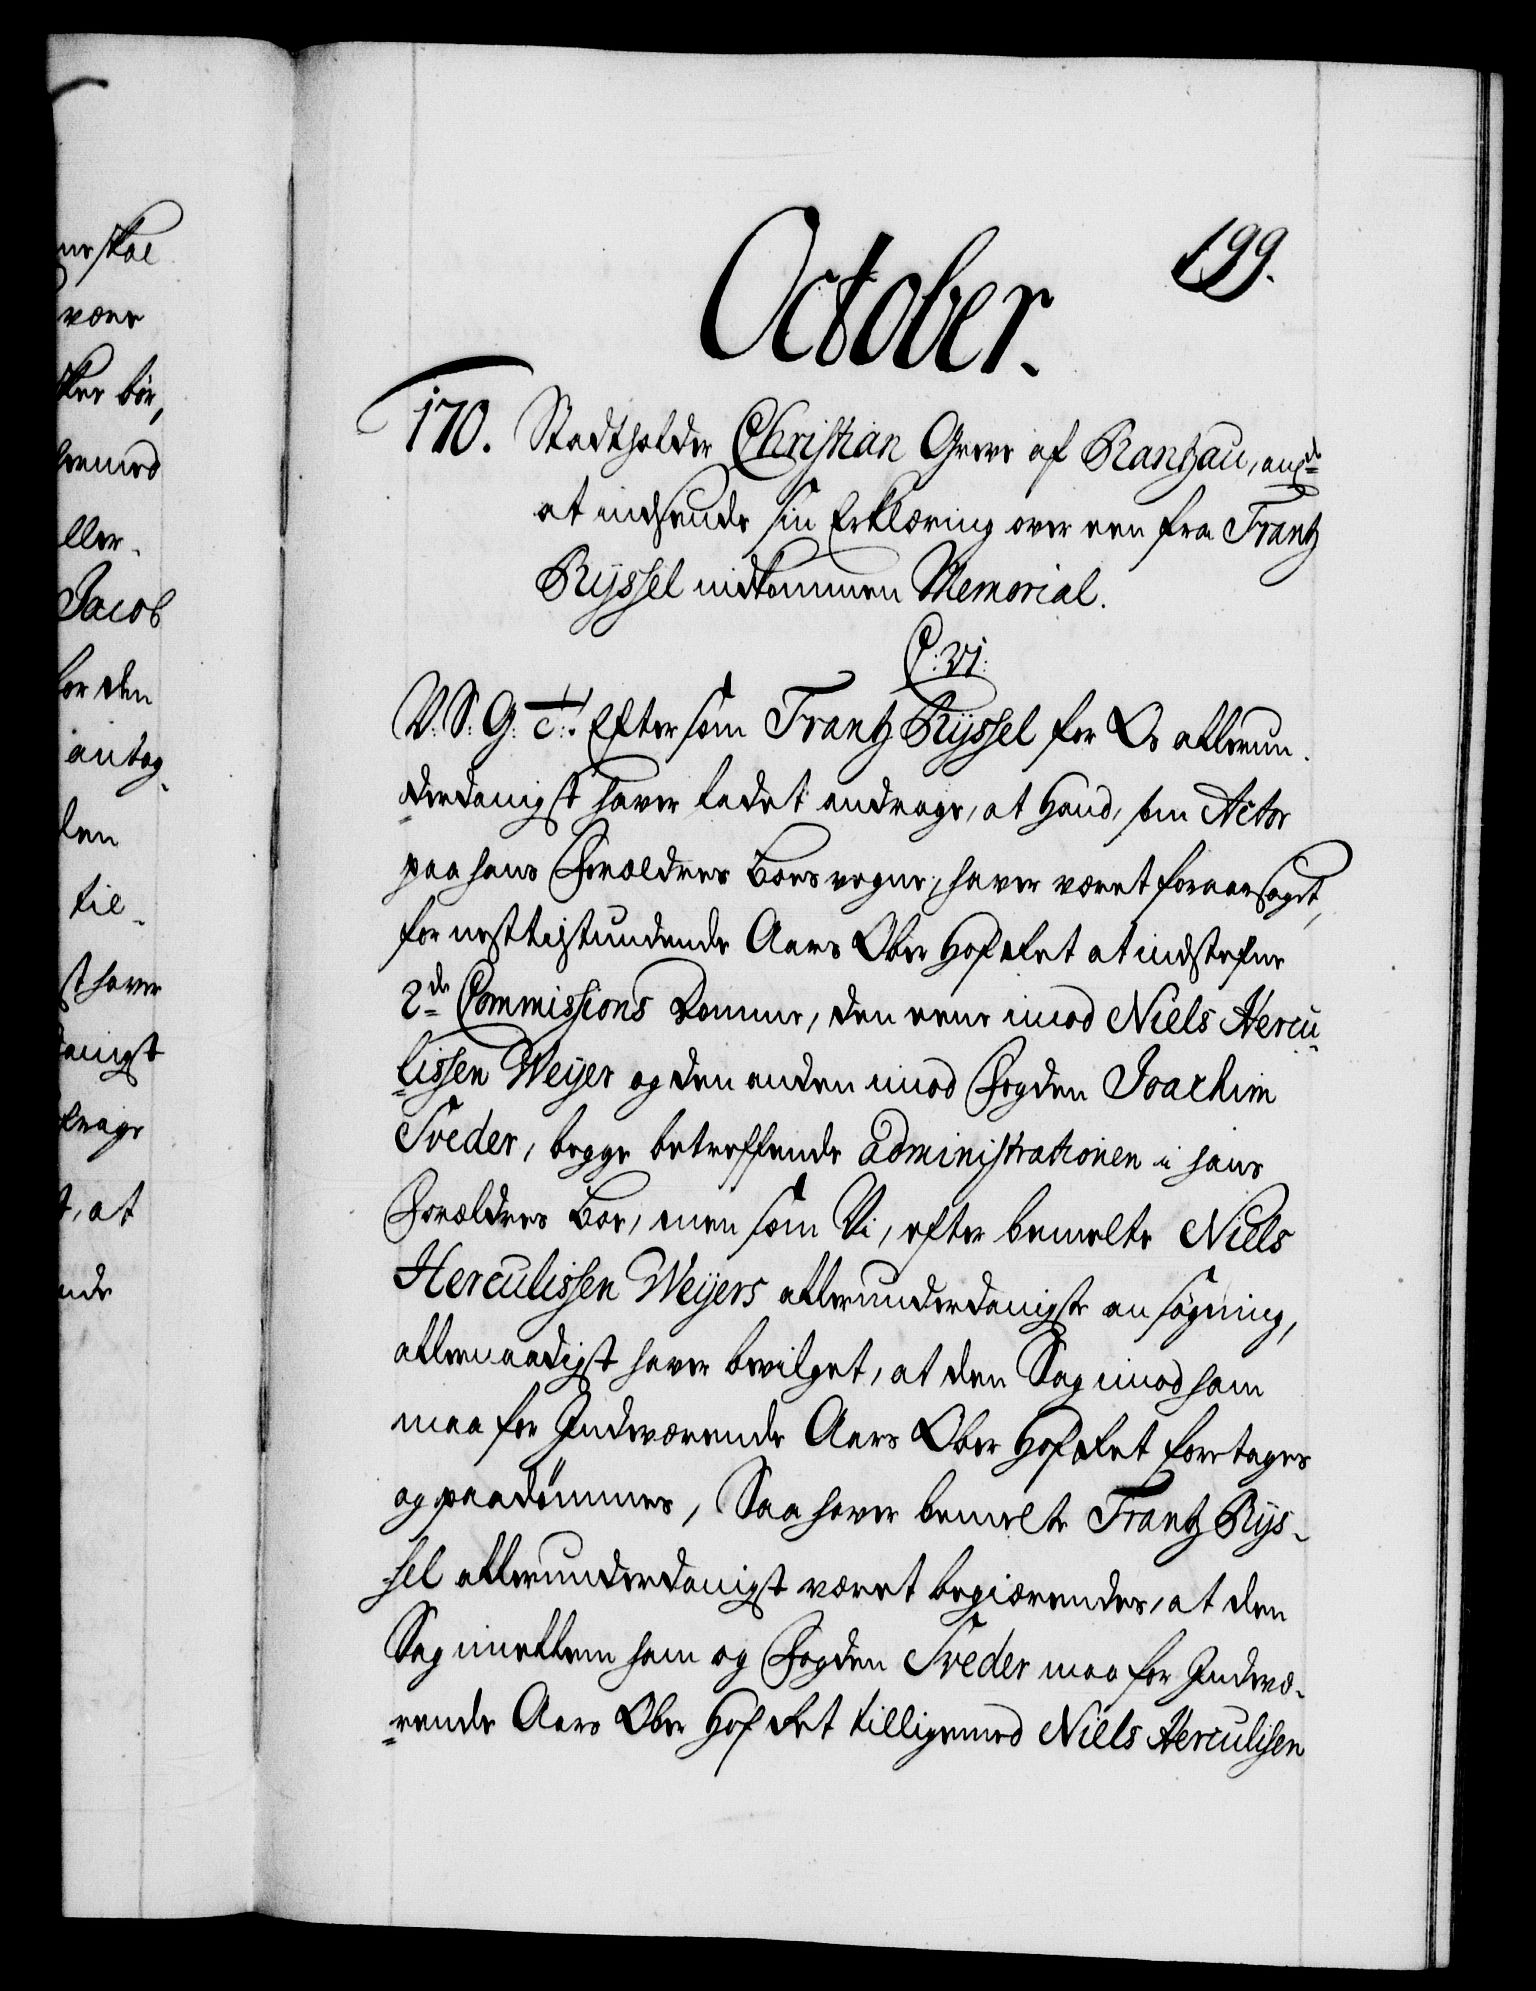 ne skal
være
sker bør,
hermed
ller-
Jacob
for den
antag-
den
til-
st haver
danigst
drage
t, at
nde
199.
October.
170. Stadtholder Christian Greve af Rantzau, ang:de
at indsende sin Erklæring over een fra Frantz
Rÿssel indkommen Memorial.
C: VI:
V: S: G: T: Eftersom Frantz Rÿssel for Os allerun-
derdanigst haver ladet andrage, at Hand, som Actor
paa hans Forældres Boes vegne, haver været foraarsaget,
for nesttilstundende Aars Ober Hof Ret at indstefne
2de Commissions Domme, den eene imod Niels Hercu-
lissen Weÿer og den anden imod Fogden Joachim
Sveder, begge betreffende administrationen i hans
Forældres Boe, men som Vi, efter bemelte Niels
Herculissen Weÿers allerunderdanigste ansøgning,
allernaadigst haver bevilget, at den Sag imod ham
maa for Indeværende Aars Ober Hof Ret foretages
og paadømmes, Saa haver bemelte Frantz Rÿs-
sel allerunderdanigst været begiærendes, at den
Sag imellem ham og Fogden Sveder maa for Indevæ-
rende Aars Ober Hof Ret tilligemed Niels Herculisen